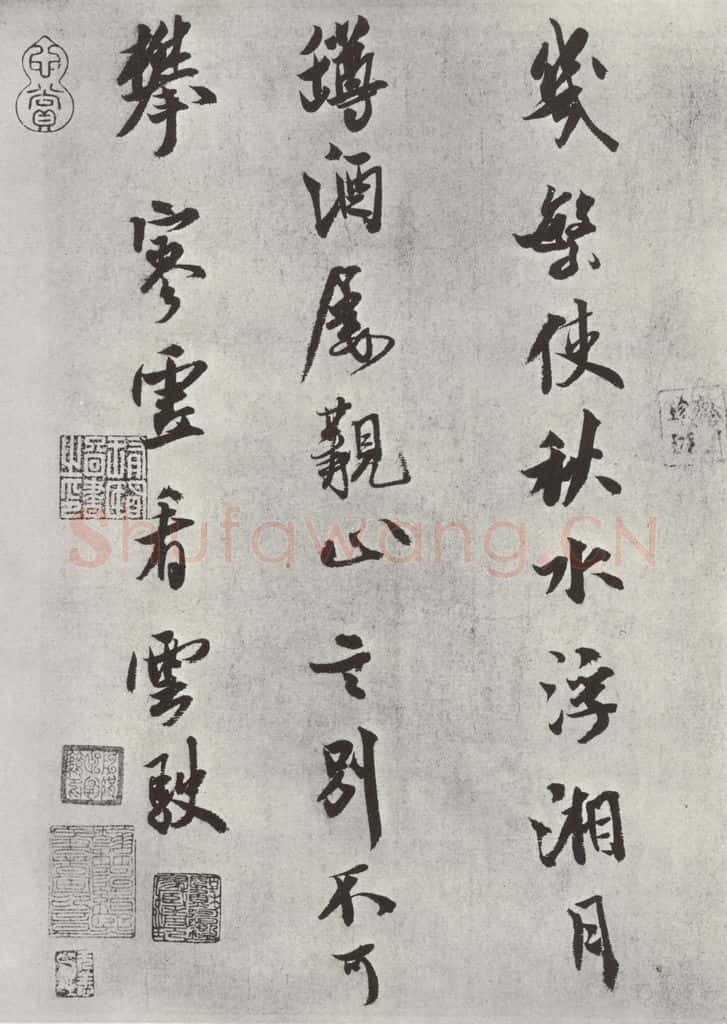 幾繁使秋水浮湘月
罇酒屢覯山言別不可
攀寥虛看雲駛
Shufawang.CN